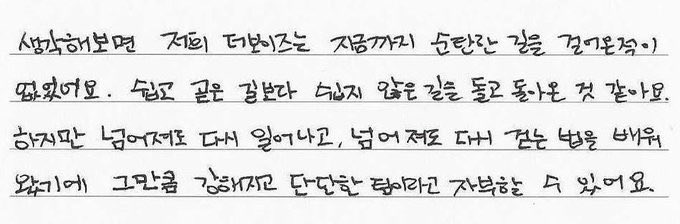 생각해보면 저희 더보이즈는 지금까지 순탄한 길을 걸어온적이
없었어요. 쉽고 곧은 길보다 쉽지 않은 길을 돌고 돌아온 것 같아요.
하지만 넘어져도 다시 일어나고, 넘어져도 다시 걷는 법을 배워
왔기에 그만큼 강해지고 단단한 팀이라고 자부할 수 있어요.